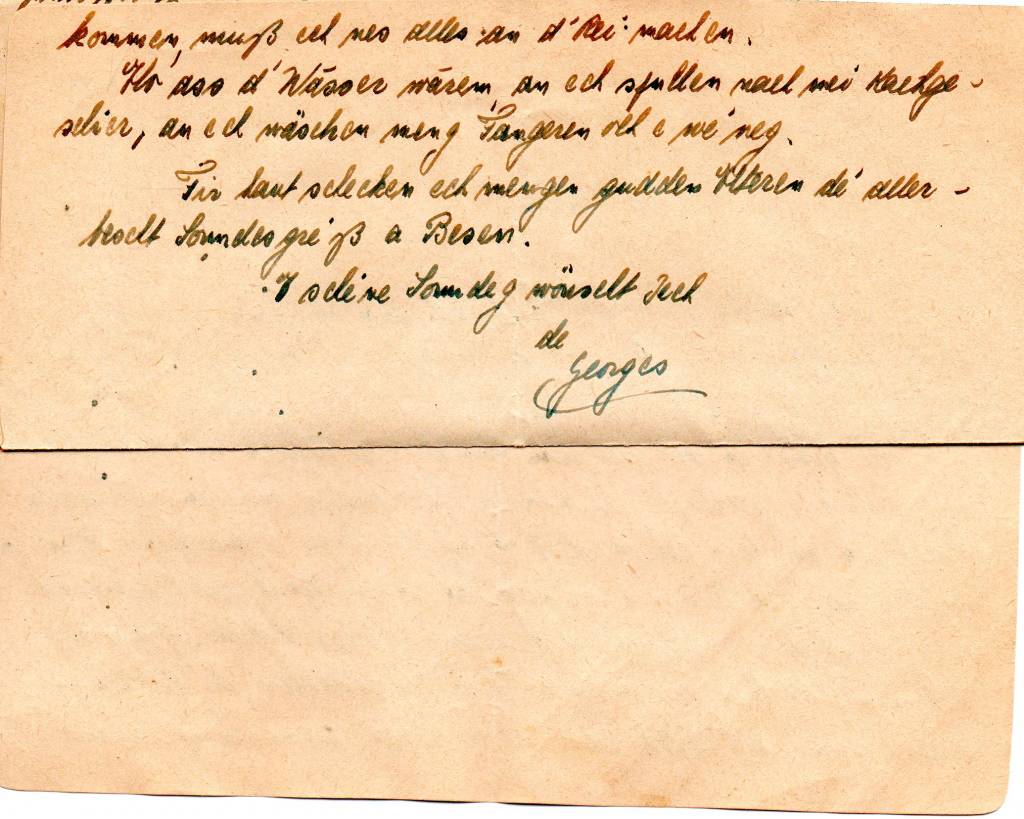 kommen, muß ech nes alles an d' Rei machen.
Ho ass d' Wässer wärem, an ech spullen nach mei Kachge-
schier, an ech wäschen meng Fangeren och e wé neg.
Fir haut schecken ech mengen gudden Elteren dé aller-
bescht Sonndesgréß a Besen.
E schéine Sonndeg wönscht Iech
de
Georges